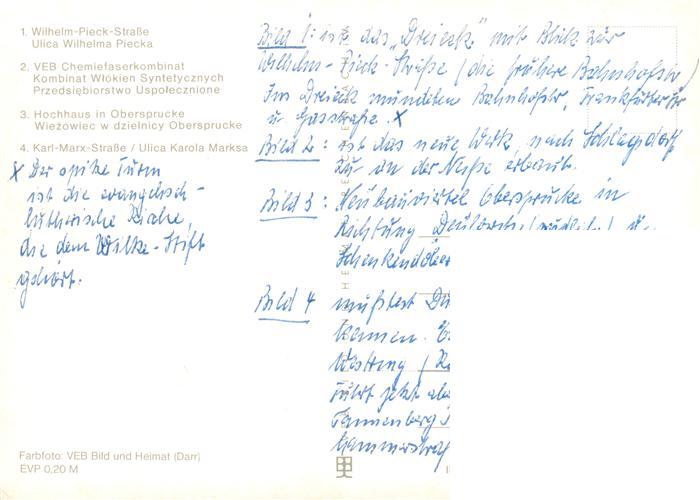 1. Wilhelm-Pieck-Straße
Ulica Wilhelma Piecka
2. VEB Chemiefaserkombinat
Kombinat Włókien Syntetycznych
Przedsiębiorstwo Uspołecznione
3. Hochhaus in Obersprucke
Wieżowiec w dzielnicy Obersprucke
4. Karl-Marx-Straße / Ulica Karola Marksa
x Der spitze Turm
ist die evangelisch-
lutherische Kirche,
die dem Wilke-Stift
gehört.
Farbfoto: VEB Bild und Heimat (Darr)
EVP 0,20 M
Bild 1: ist das „Dreieck" mit Blick zur
Wilhelm-Pieck-Straße (die frühere Bahnhofstr)
Im Dreieck mündeten Bahnhofstr, Frankfurter Str
u Gasstraße. x
Bild 2: ist das neue Werk, nach Schlagsdorf
zu an der Neiße erbaut.
Bild 3: Neubauviertel Obersprucke in
Richtung u.
Schenkendöber
Bild 4 müßtest Du
kennen.
führt jetzt
Tannenberg